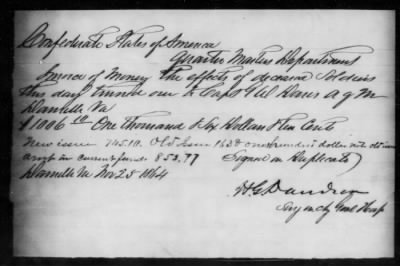 Confederate States of America
Quarter Masters Department
Invoice of Money the effects of deceased Soldiers
this day turned over to Capt G W Davis A Q M
Danville Va
$1006 10 One Thousand & Six Dollars & Ten Cents
New issue Old issue one hundred dollar note old issue
in current funds 853.77 Signed in Duplicate
Danville Va Nov 25 1864
Surg in chg Genl Hosp